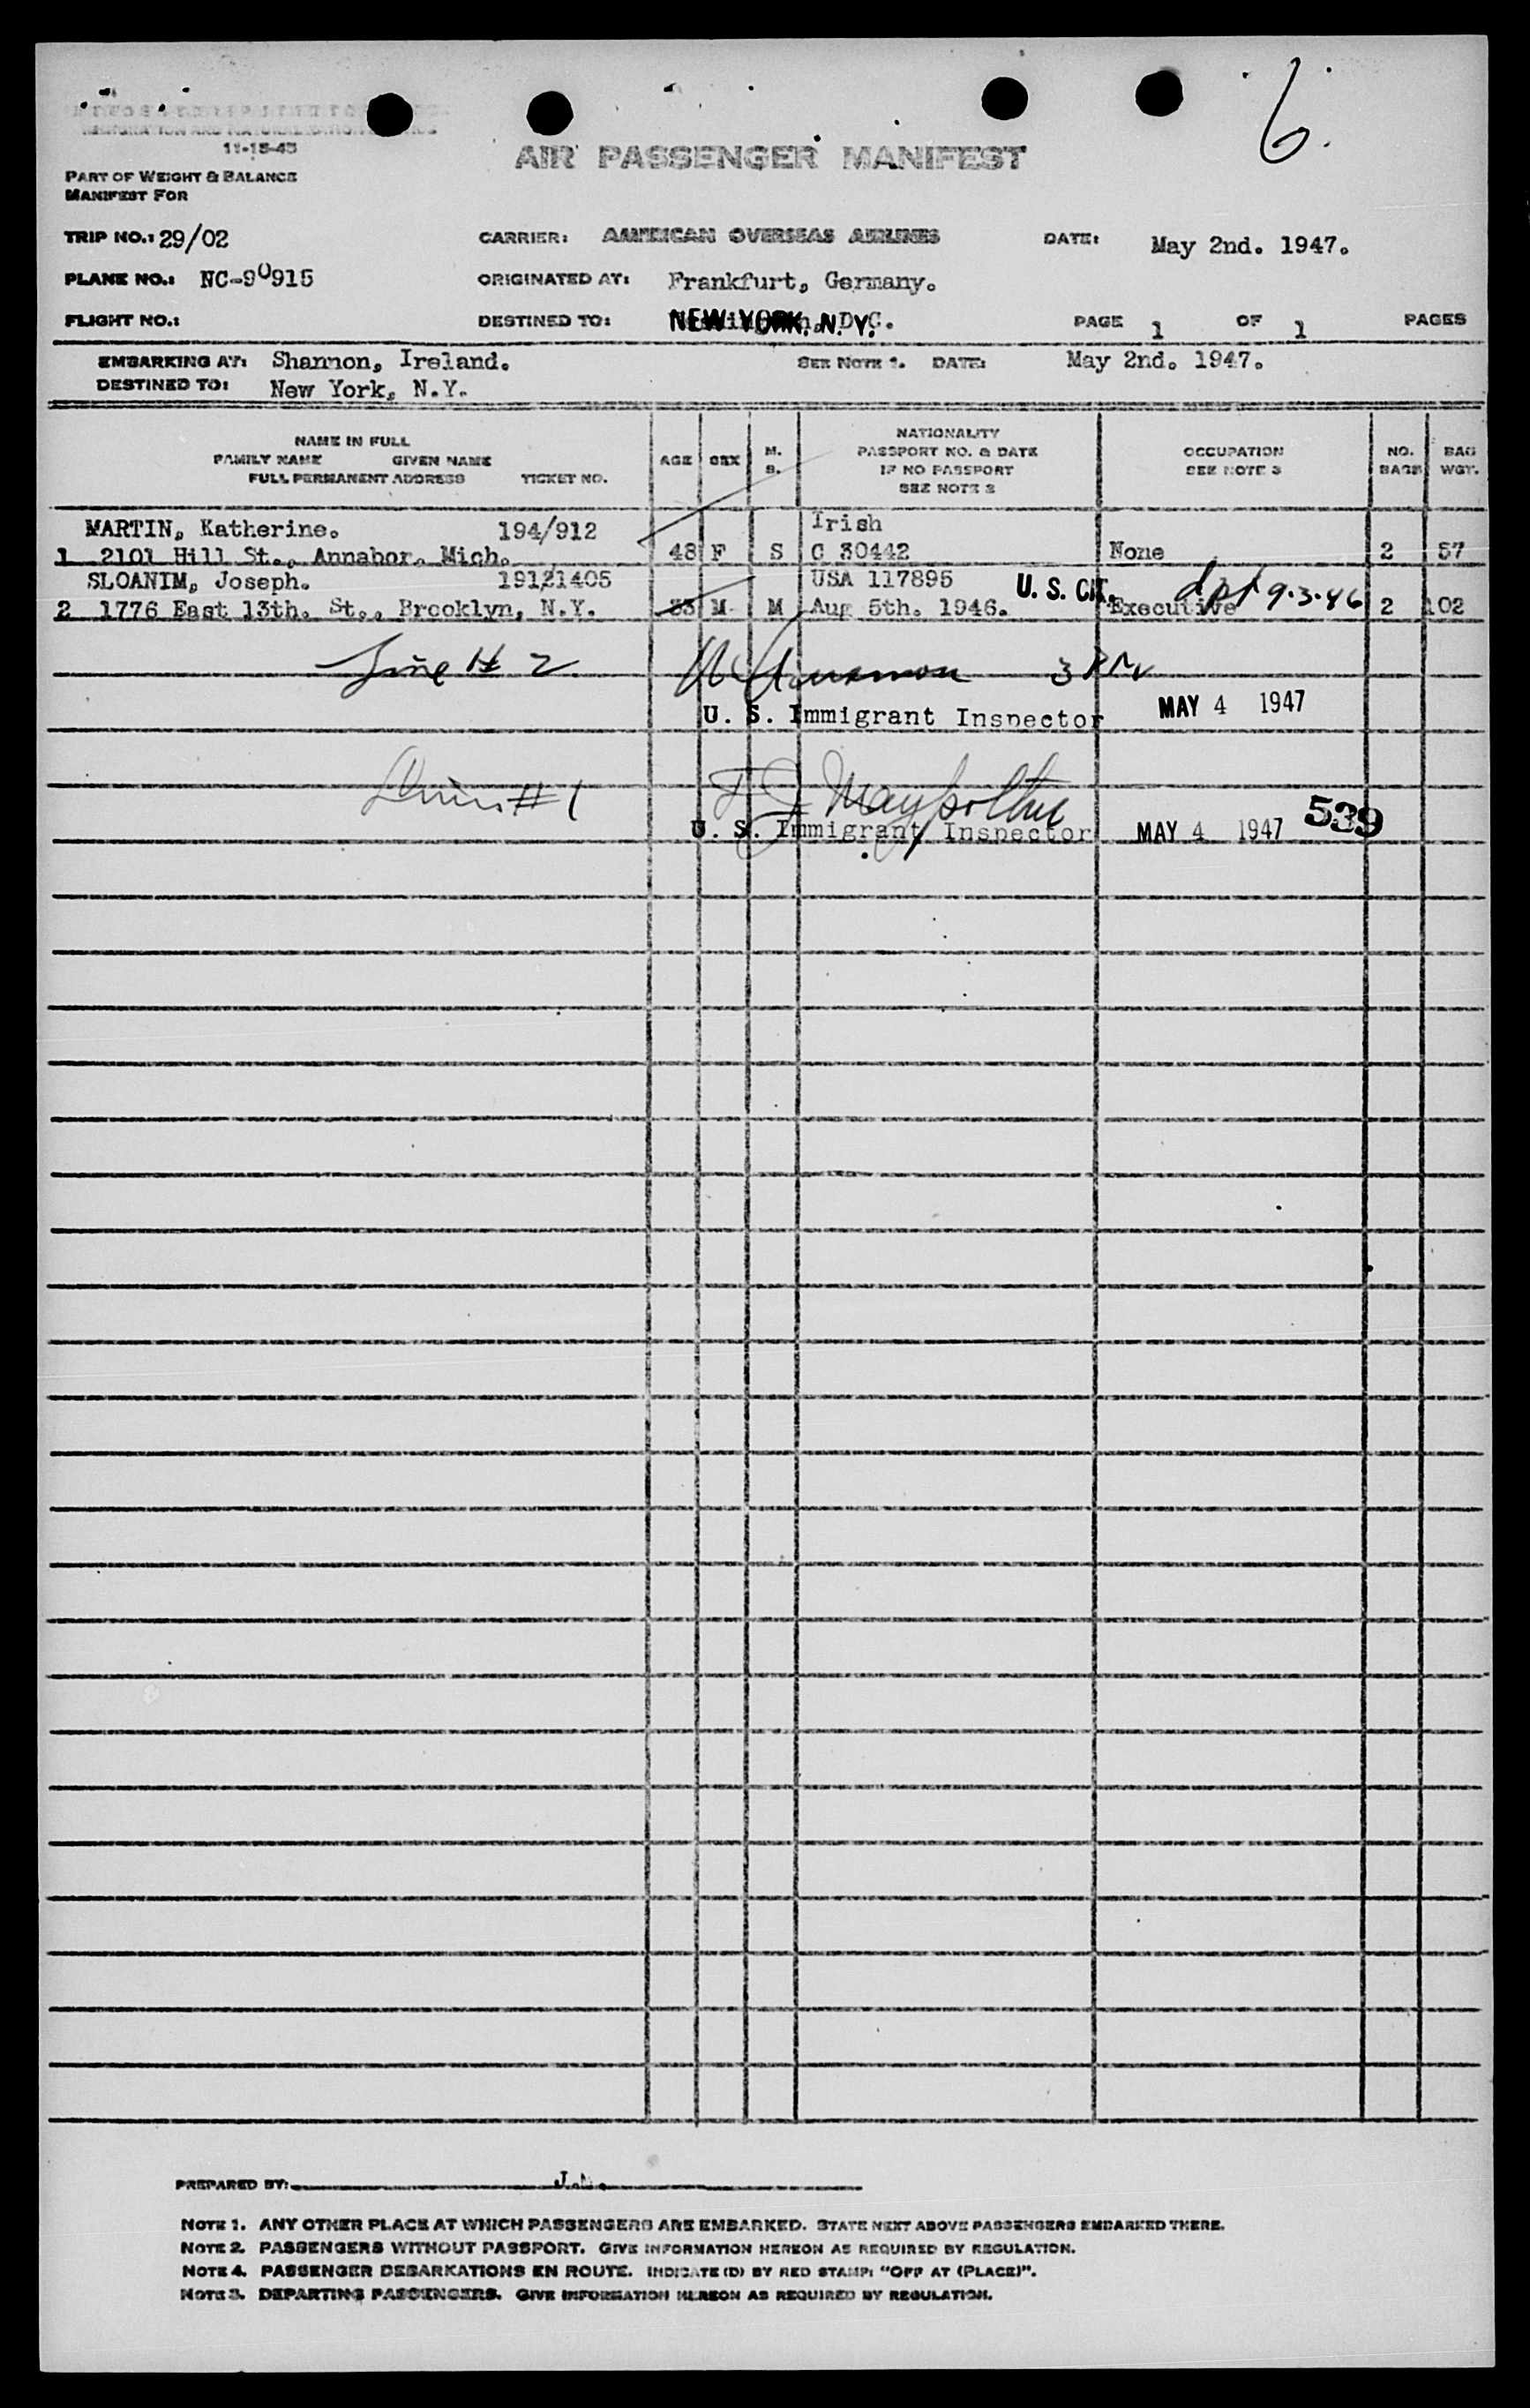 6.
11-15-45
AIR PASSENGER MANIFEST
PART OF WEIGHT & BALANCE
MANIFEST FOR
TRIP NO.: 29/02 CARRIER: AMERICAN OVERSEAS AIRLINES DATE: May 2nd. 1947.
PLANE NO.: NC-90915 ORIGINATED AT: Frankfurt, Germany.
FLIGHT NO.: DESTINED TO: NEW YORK, N. Y. PAGE 1 OF 1 PAGES
EMBARKING AT: Shannon, Ireland. SEE NOTE 1. DATE: May 2nd. 1947.
DESTINED TO: New York, N.Y.
NAME IN FULL
FAMILY NAME GIVEN NAME
FULL PERMANENT ADDRESS TICKET NO.
AGE SEX M. S.
NATIONALITY
PASSPORT NO. & DATE
IF NO PASSPORT
SEE NOTE 2
OCCUPATION
SEE NOTE 3
NO. BAGS
BAG WGT.
MARTIN, Katherine. 194/912 Irish
1 2101 Hill St., Annabor, Mich. 48 F S C 30442 None 2 57
SLOANIM, Joseph. 19121405 USA 117895 U. S. CIT. dpt 9-3-46
2 1776 East 13th. St., Brooklyn, N.Y. 33 M M Aug 5th. 1946. Executive 2 102
Line # 2
U. S. Immigrant Inspector MAY 4 1947
# 1
U. S. Immigrant Inspector MAY 4 1947 539
PREPARED BY:
NOTE 1. ANY OTHER PLACE AT WHICH PASSENGERS ARE EMBARKED. STATE NEXT ABOVE PASSENGERS EMBARKED THERE.
NOTE 2. PASSENGERS WITHOUT PASSPORT. GIVE INFORMATION HEREON AS REQUIRED BY REGULATION.
NOTE 4. PASSENGER DEBARKATIONS EN ROUTE. INDICATE (D) BY RED STAMP: "OFF AT (PLACE)".
NOTE 3. DEPARTING PASSENGERS. GIVE INFORMATION HEREON AS REQUIRED BY REGULATION.